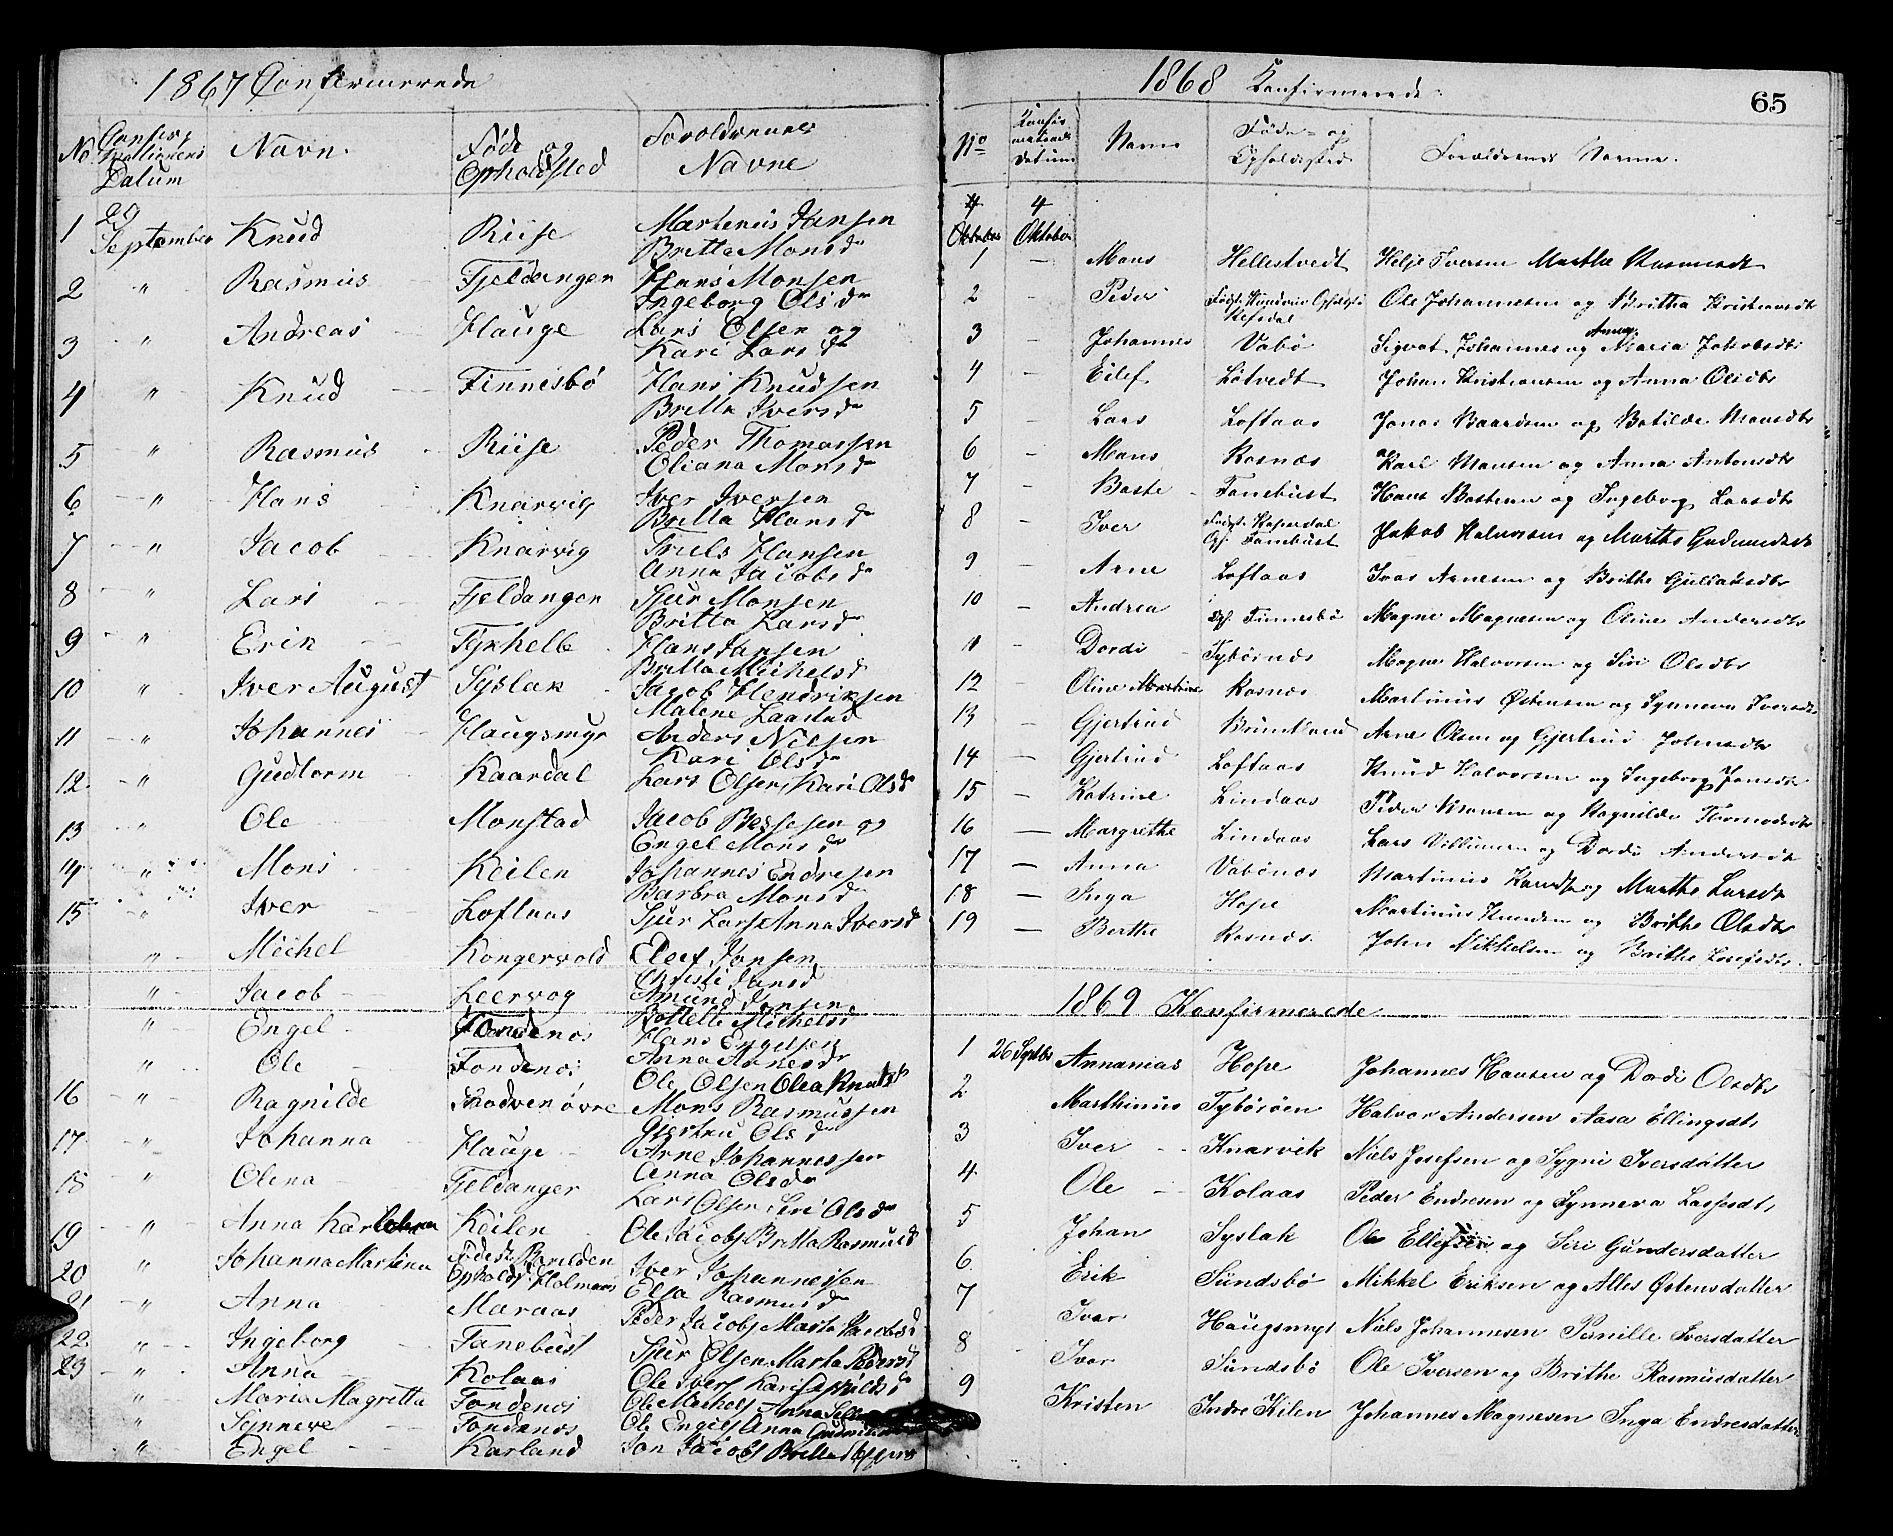 1867 Confermerede
No. Datum Navn. Føde og Ophold sted Foreldrenes Navne
1 29 September Knud Riise Martenus Jansen Britta Monsd
2 " Rasmus Fjeldanger Hans Monsen Ingeborg Olsd
3 " Andreas Hauge Lars Olsen og Kari Larsd
4 " Knud Finnesbø Hans Knudsen Britta Iversd
5 " Rasmus Riise Peder Thomassen Oliana Monsd
6 " Hans Knarvig Iver Iversen Britta Hansd
7 " Jacob Knarvig Truels Hansen Anna Jacobsd
8 " Lars Fjeldanger Sjur Monsen Britta Larsd
9 " Erik Hans Jansen Britta Michelsd
10 " Iver August Syslak Jacob Hendriksen Malene Laastad
11 " Johannes Haugsmyr Anders Nilsen Kari Olsd
12. " Gudtorm Kaardal Lars Olsen, Kari Olsd
13 " Ole Monstad Jacob og Engel Monsd
14 " Mons Keilen Johannes Endresen Barbra Monsd
15 " Iver Loftaas Sjur Lars Anna Iversd
" Michel Kongervold Elef Jansen Christi Jansd
" Jacob Leervog Amund Jonsen Michelsd
" Engel Fondenos Hans Engelsen Anna Arnesd
" Ole Fondenos Ole Olsen Olea Knuts
16 " Ragnilde Skodven øvre Mons Rasmussen Gjertru Olsd
17 " Johanna Hauge Arne Johannessen Anna Olsd
18 " Olena Fjeldanger Lars Olsen Siri Olsd
19 " Anna Keilen Ole Jacobs Britta Rasmusd
20 " Johanna Martina Fødest Opholdst Holmaas Iver Johannessen Elsa Rasmusd
21 " Anna Maraas Peder Jacobs Marta Jacobsd
22 " Ingeborg Fanebust Sjur Olsen Marta Pedersd
23 " Anna Kolaas Ole Ivers Kari
" Maria Magretta Fondenos Ole Michels Anna
" Sinneve Fondenos Ole Engels Anna
" Engel Karland Jon Jacobs Britta
1868 Konfirmerede. 65
No Konfirmationsdatum Navne Føde- og Opholdssted Forældrenes Navne.
4 Oktober 4 Oktober
1 – Mons Hellestvedt Helje Iversen Marthe Rasmusdt
2 – Peder Ole Johannesen og Britha Kristiansdtr
3 – Johannes Vabø Sigvat Johannes og Anna Maria Jakobsdtr
4 – Eilef Løtvedt Johan Kristiansen og Anna Olsdtr
5 – Lars Loftaas Jonas Baardsen og Botilde Monsdtr
6 – Mons Rosnæs Karl Monsen og Anna Antonsdtr
7 – Baste Fanebust Hans Bastesen og Ingeborg Larsdtr
8 – Iver Fødst. Oph. Fanebust Jakob Halvorsen og Marthe
9 – Arne Loftaas Ivar Arnesen og Brithe
10 – Andrea Oph. Finnesbø Magne Magnesen og Oline Andersdtr
11 – Dordi Tybørnæs Magne Halvorsen og Siri Olsdtr
12 – Oline Martine Rosnæs Martinus Østensen og Synneva Iversdtr
13 – Gjertrud Arne Olsen og Gjertrud Johnsdtr
14 – Gjertrud Loftaas Knud Halvorsen og Ingeborg Jonsdtr
15 – Katrine Lindaas Peder Monsen og Ragnilde Thomasdtr
16 – Margrethe Lindaas Lars Villumsen og Dordi Andersdtr
17 – Anna Vabønæs Martinus og Marthe Larsdtr
18 – Inga Hope Martinus Knudsen og Brithe Olsdtr
19 – Berthe Rosnæs. John Mikkelsen og Brithe
1869 Konfirmerede
1 26 Septbr Annanias Hope Johannes Hansen og Dordi Olsdtr
2 Marthinus Tybørøen Halvor Andersen Aasa Ellingsdtr
3 Iver Knarvik Niels Josefsen og Sygni Iversdatter
4 Ole Kolaas Peder Endresen og Synneva Lassesdtr
5 Johan Syslak Ole Ellefsen og Siri Gundersdatter
6. Erik Sundsbø Mikkel Eriksen og Alles Østensdatter
7 Ivar Haugsmyr Niels Johannesen Pernille Iversdatter
8 Ivar Sundsbø Ole Iversen og Brithe Rasmusdatter
9 Kristen Indre Kilen Johannes Magnesen Inga Endresdatter